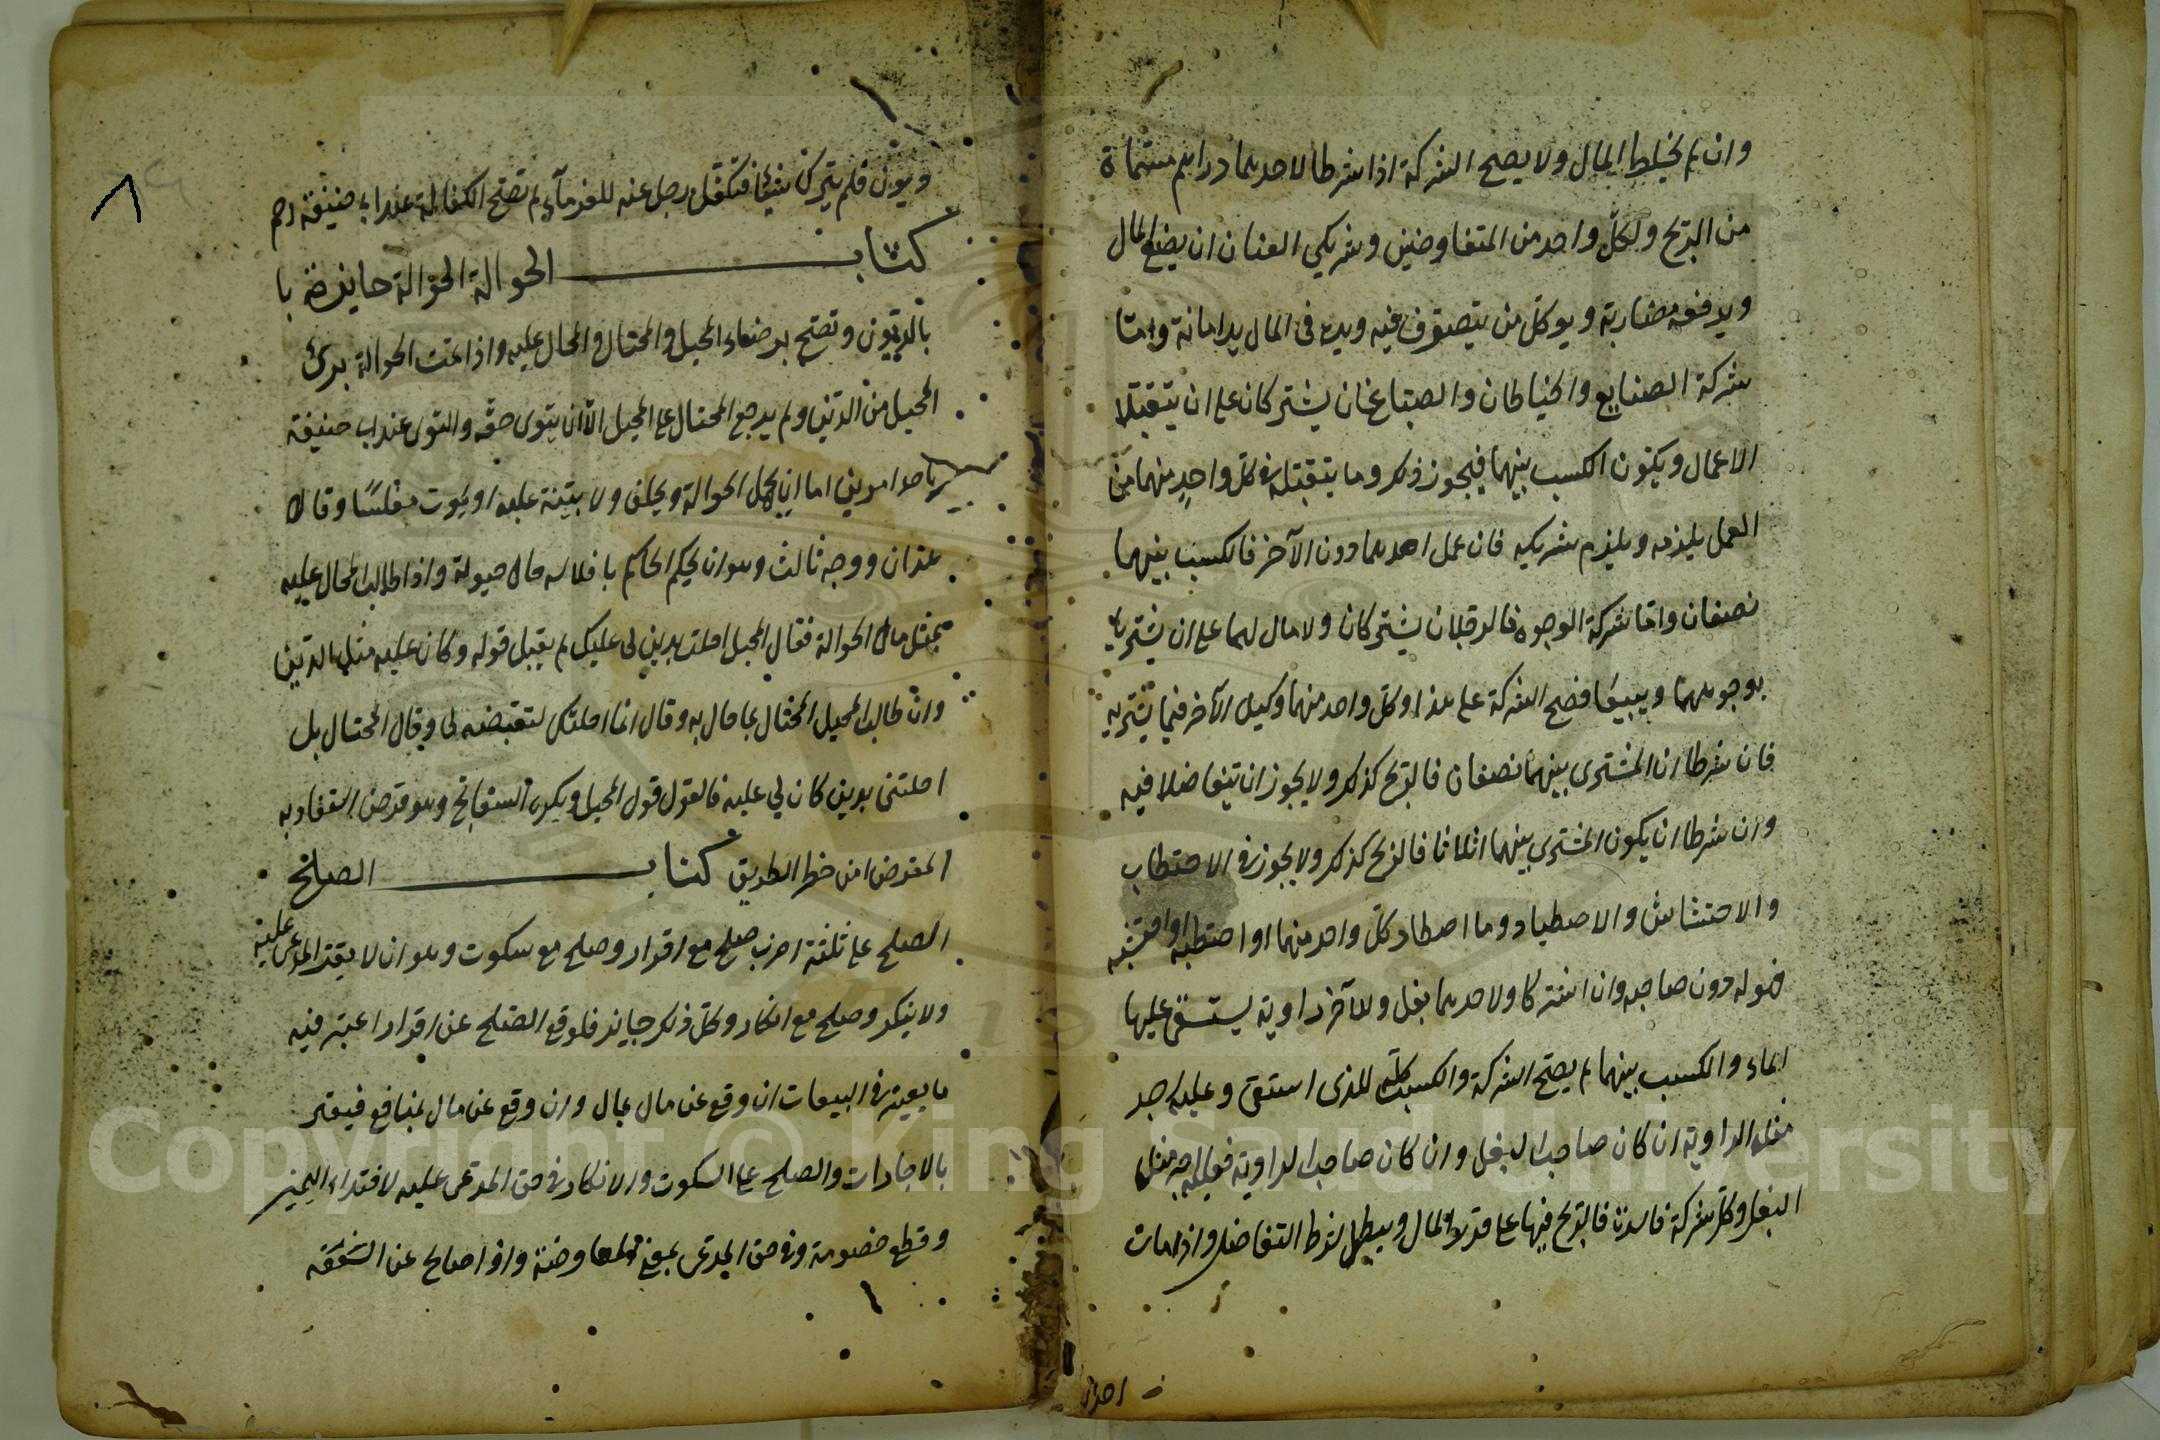 وان لم يخلط المال ولا يصح الشركة اذا شرطا لاحدهما دراهم مسماة
من الربح ولكل واحد من المتفاوضين وشريكي العنان ان يبضع المال
ويدفعه مضاربة ويوكل من يتصرف فيه ويده في المال يد امانة واما
شركة الصنايع والخياطان والصباغان يشتركان على ان يتقبلا
الاعمال ويكون الكسب بينهما فيجوز ذلك وما يتقبله كل واحد منهما من
العمل يلزمه ويلزم شريكه فان عمل احدهما دون الآخر فالكسب بينهما
نصفان واما شركة الوجوه فالرجلان يشتركان ولا مال لهما على ان يشتريا
بوجوههما ويبيعا فصح الشركة على هذا وكل واحد منهما وكيل الآخر فيما يشتريه
فان شرطا ان المشترى بينهما نصفان فالربح كذلك ولا يجوز ان يتفاضلا فيه
وان شرطا ان يكون المشترى بينهما اثلاثا فالربح كذلك ولا يجوز في الاحتطاب
والاحتشاش والاصطياد وما اصطاد كل واحد منهما او احتطبه
فهو له دون صاحبه وان اشتركا ولاحدهما بغل وللآخر راوية ليستقى عليها
الماء والكسب بينهما لم يصح الشركة والكسب كله للذى استقى وعليه اجر
مثل الراوية ان كان صاحب البغل وان كان صاحب الراوية فعليه اجر مثل
البغل وكل شركة فاسدة فالربح فيها على قدر المال ويبطل شرط التفاضل واذا مات
احد
ديون فلم يترك شيئا فتكفل رجل عنه للغرماء لم تصح الكفالة عند ابي حنيفة رحم
كتاب الحوالة الحوالة جايزة با
بالديون وتصح برضاء المحيل والمحتال والمحال عليه واذا تمت الحوالة برئ
المحيل من الدين ولم يرجع المحتال على المحيل الا ان يتوى حقه والتوى عند ابى حنيفة
باحد امرين اما ان يجحد الحوالة ويحلف ولا بينة عليه او يموت مفلسا وقالا
هذان ووجه ثالث وهو ان يحكم الحاكم بافلاسه حال حيوته واذا طالب المحال عليه
بمثل مال الحوالة فقال المحيل احلت بدين لى عليك لم يقبل قوله وكان عليه مثل الدين
وان طالب المحيل المحتال بما حال به وقال انما احلتك لتقبضه لى وقال المحتال بل
احلتنى بدين كان لي عليه فالقول قول المحيل ويكره السفاتج وهو قرض استفاد به
المقرض امن خطر الطريق كتاب الصلح
الصلح على ثلثة اضرب صلح مع اقرار وصلح مع سكوت وهو ان لا يقر المدعى عليه
ولا ينكر وصلح مع انكار وكل ذلك جايز فلو وقع الصلح عن اقرار اعتبر فيه
ما يعتبر في البيعات ان وقع عن مال بمال وان وقع عن مال بمنافع فيعتبر
بالاجارات والصلح على السكوت والانكار في حق المدعى عليه لافتداء اليمين
وقطع خصومة وفى حق المدعى بمعنى المعاوضة واذا صالح عن الشفعة
Copyright © King Saud University